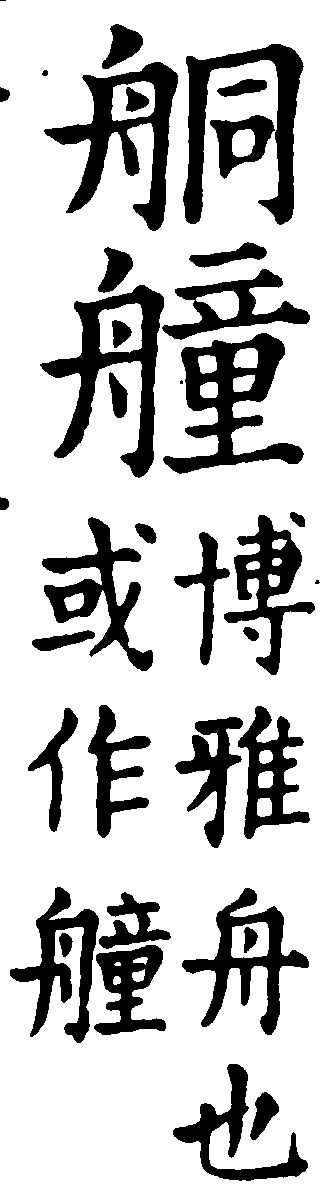 舸艟
博雅舟也
或作艟